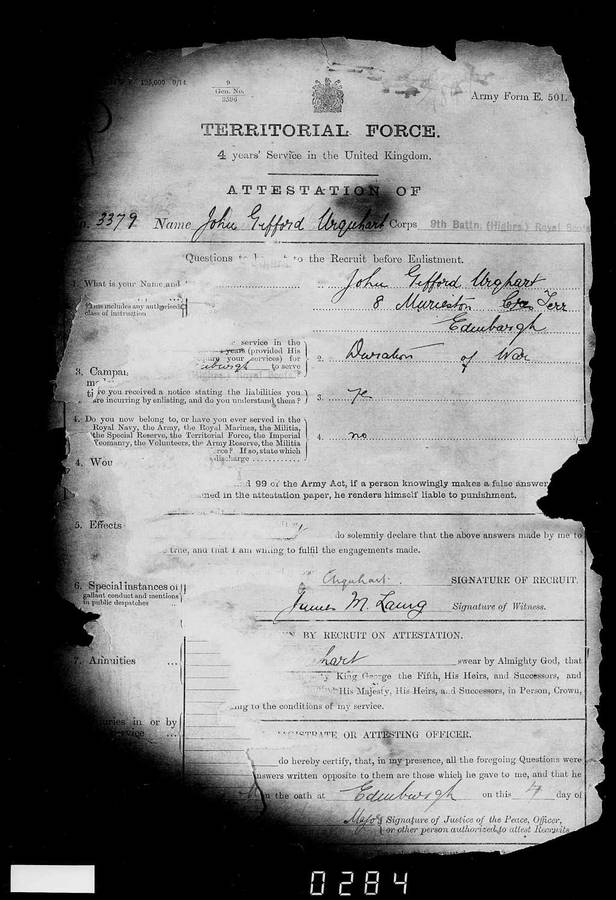 125,000 9/14
9
Gen. No.
3596
Army Form E. 501.
TERRITORIAL FORCE.
4 years' Service in the United Kingdom.
ATTESTATION OF
3379 Name John Gifford Urquhart Corps 9th Battn. (Highrs.) Royal Scots
Questions to the Recruit before Enlistment.
1. What is your Name and John Gifford Urqhart
8 Murieston Cres Terr
class includes any authorised
class of instruction
Edinburgh
service in the
years (provided His
your services) for
to serve
2. Duration of War
(Highrs.) Royal Scots
3. Campai
have you received a notice stating the liabilities you
are incurring by enlisting, and do you understand them?
3. ye
4. Do you now belong to, or have you ever served in the
Royal Navy, the Army, the Royal Marines, the Militia,
the Special Reserve, the Territorial Force, the Imperial
Yeomanry, the Volunteers, the Army Reserve, the Militia
? If so, state which
discharge
4. no
4. Wou
99 of the Army Act, if a person knowingly makes a false answer
in the attestation paper, he renders himself liable to punishment.
5. Effects
do solemnly declare that the above answers made by me to
true, and that I am willing to fulfil the engagements made.
6. Special instances of
gallant conduct and mentions
in public despatches
Urquhart. SIGNATURE OF RECRUIT.
James M. Laing Signature of Witness.
BY RECRUIT ON ATTESTATION.
7. Annuities ...
hart swear by Almighty God, that
King George the Fifth, His Heirs, and Successors, and
His Majesty, His Heirs, and Successors, in Person, Crown,
to the conditions of my service.
injuries in or by
service
MAGISTRATE OR ATTESTING OFFICER.
do hereby certify, that, in my presence, all the foregoing Questions were
answers written opposite to them are those which he gave to me, and that he
the oath at Edinburgh on this 4 day of
Major Signature of Justice of the Peace, Officer,
or other person authorized to attest Recruits.
0284